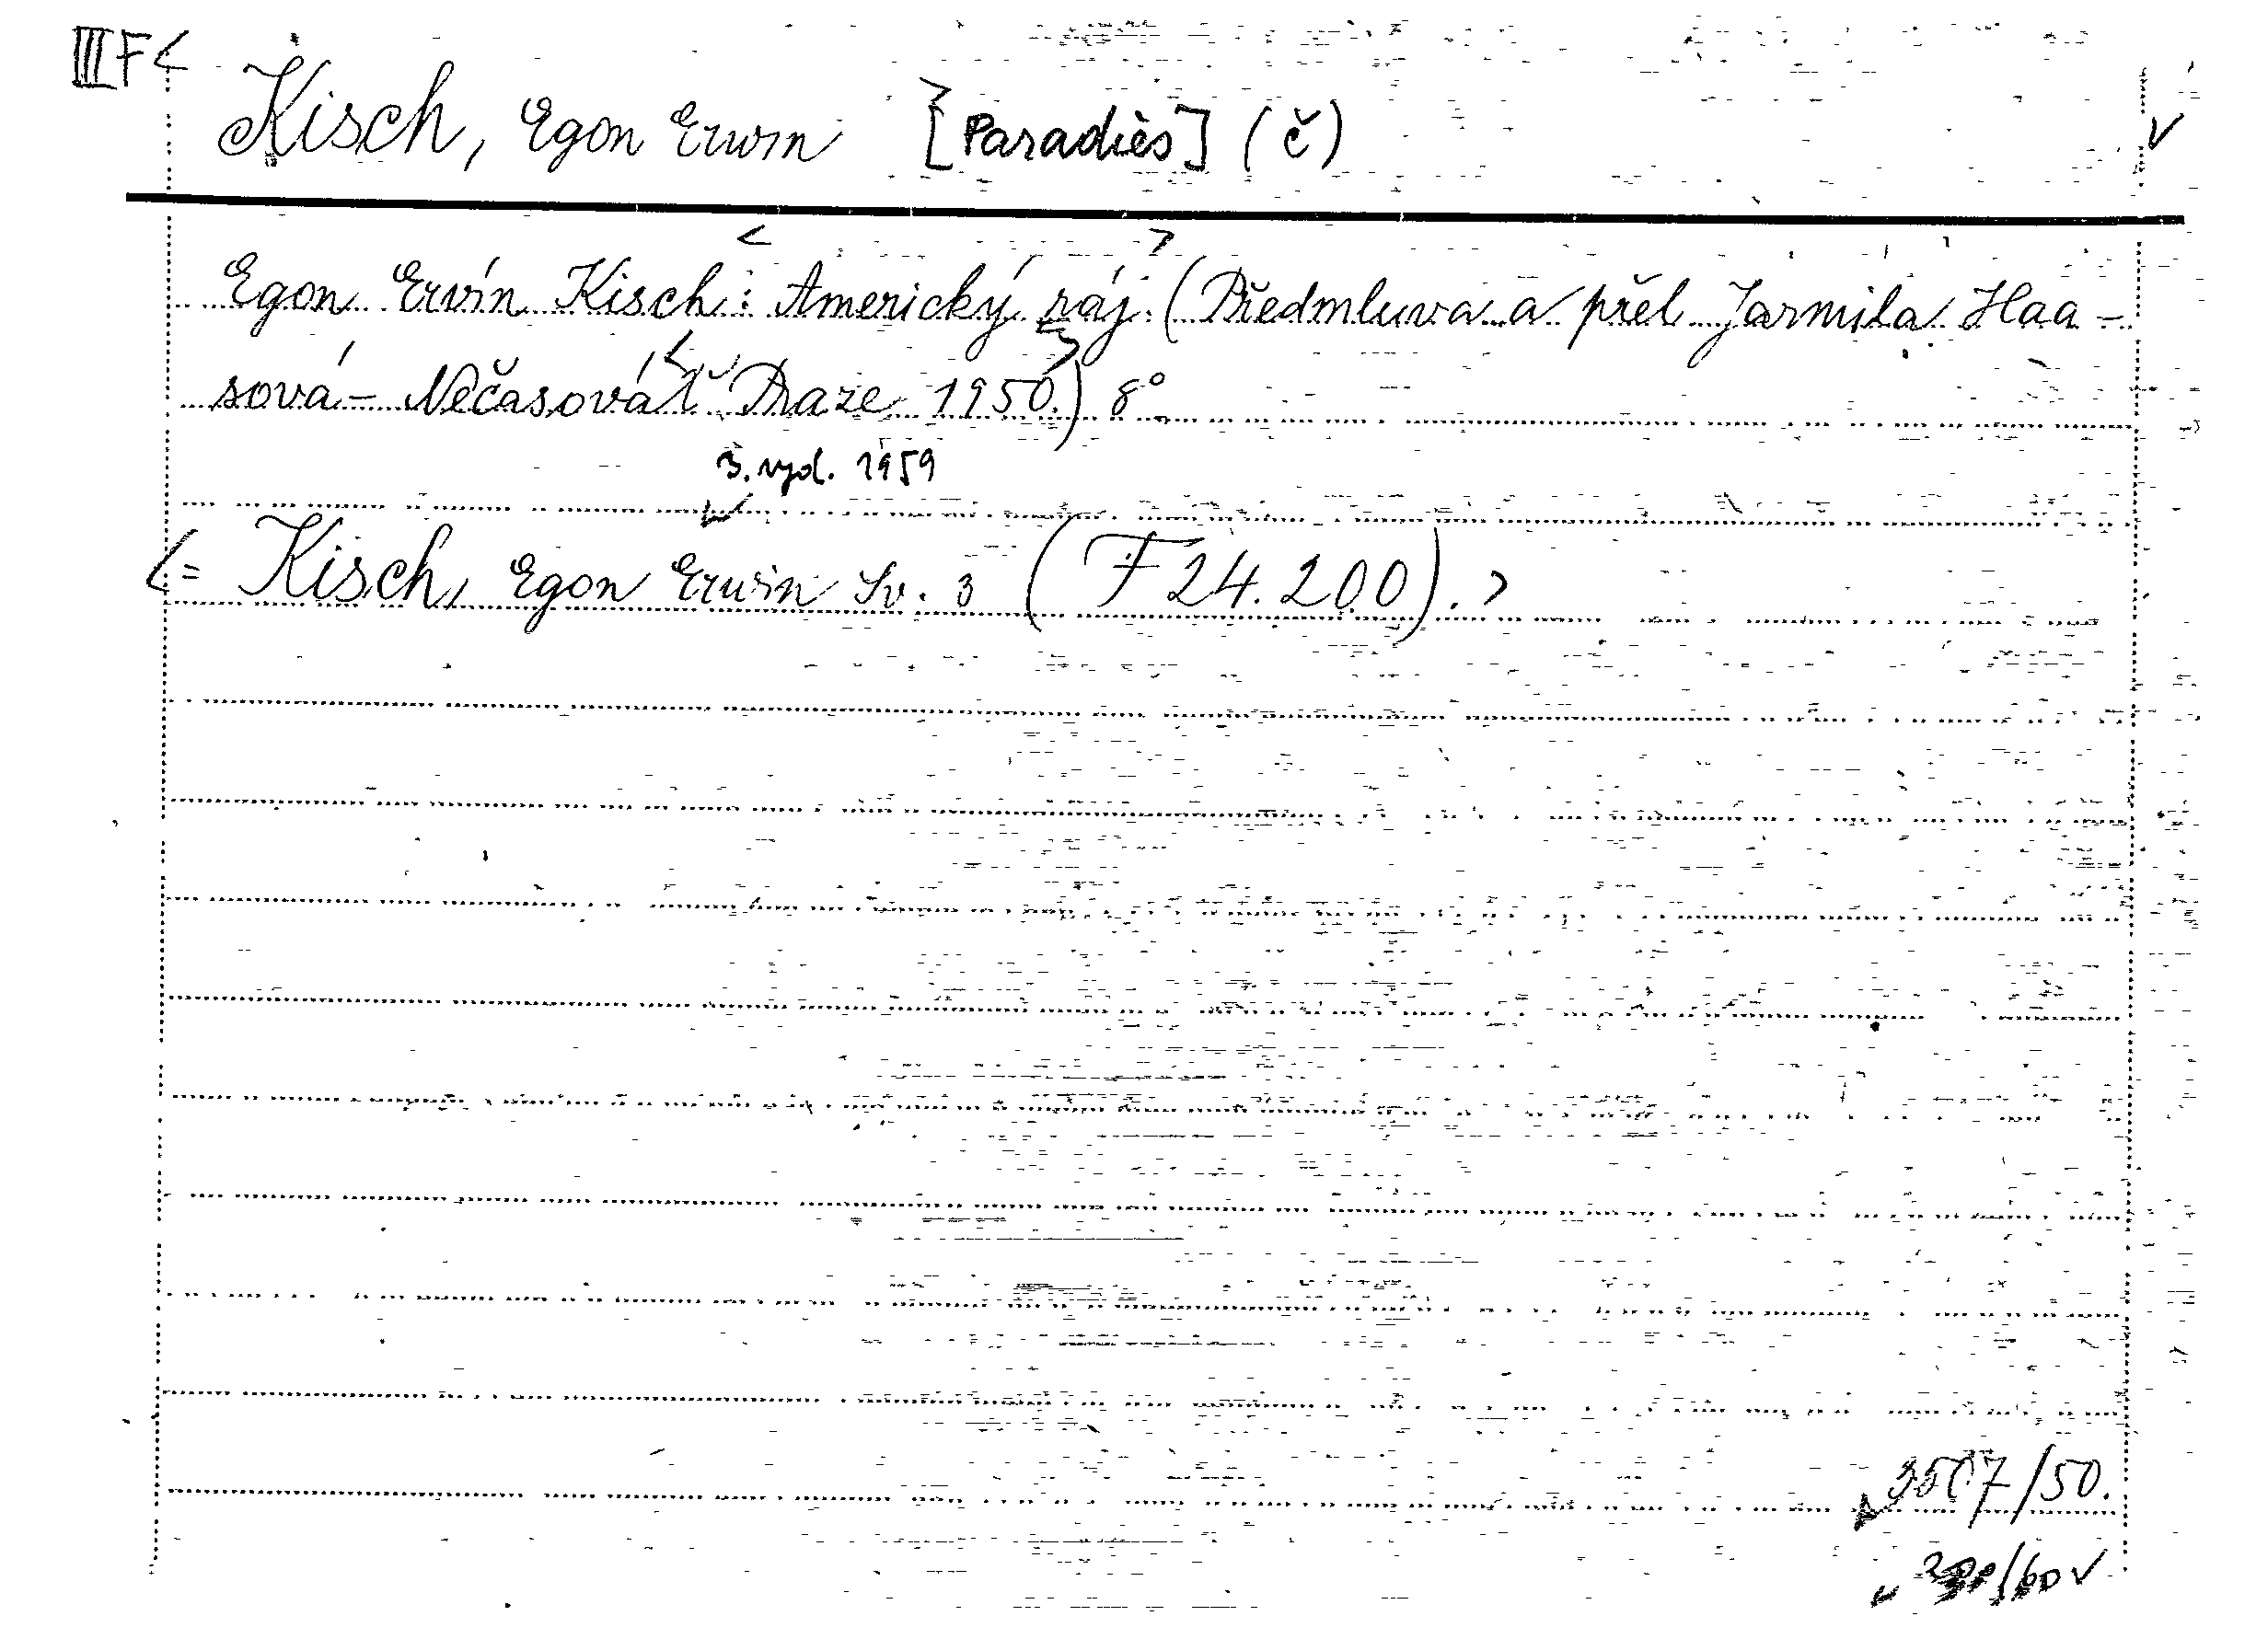 III F <
Kisch, Egon Erwin [Paradies] (č)
Egon Ervín Kisch: <Americký ráj.> (Předmluva a přel Jarmila Haa-
sová-Nečasová. <V Praze 1950.>) 8°.
3. vyd. 1959
<= Kisch, Egon Erwin Sv. 3 (F 24.200).>
3507/50.